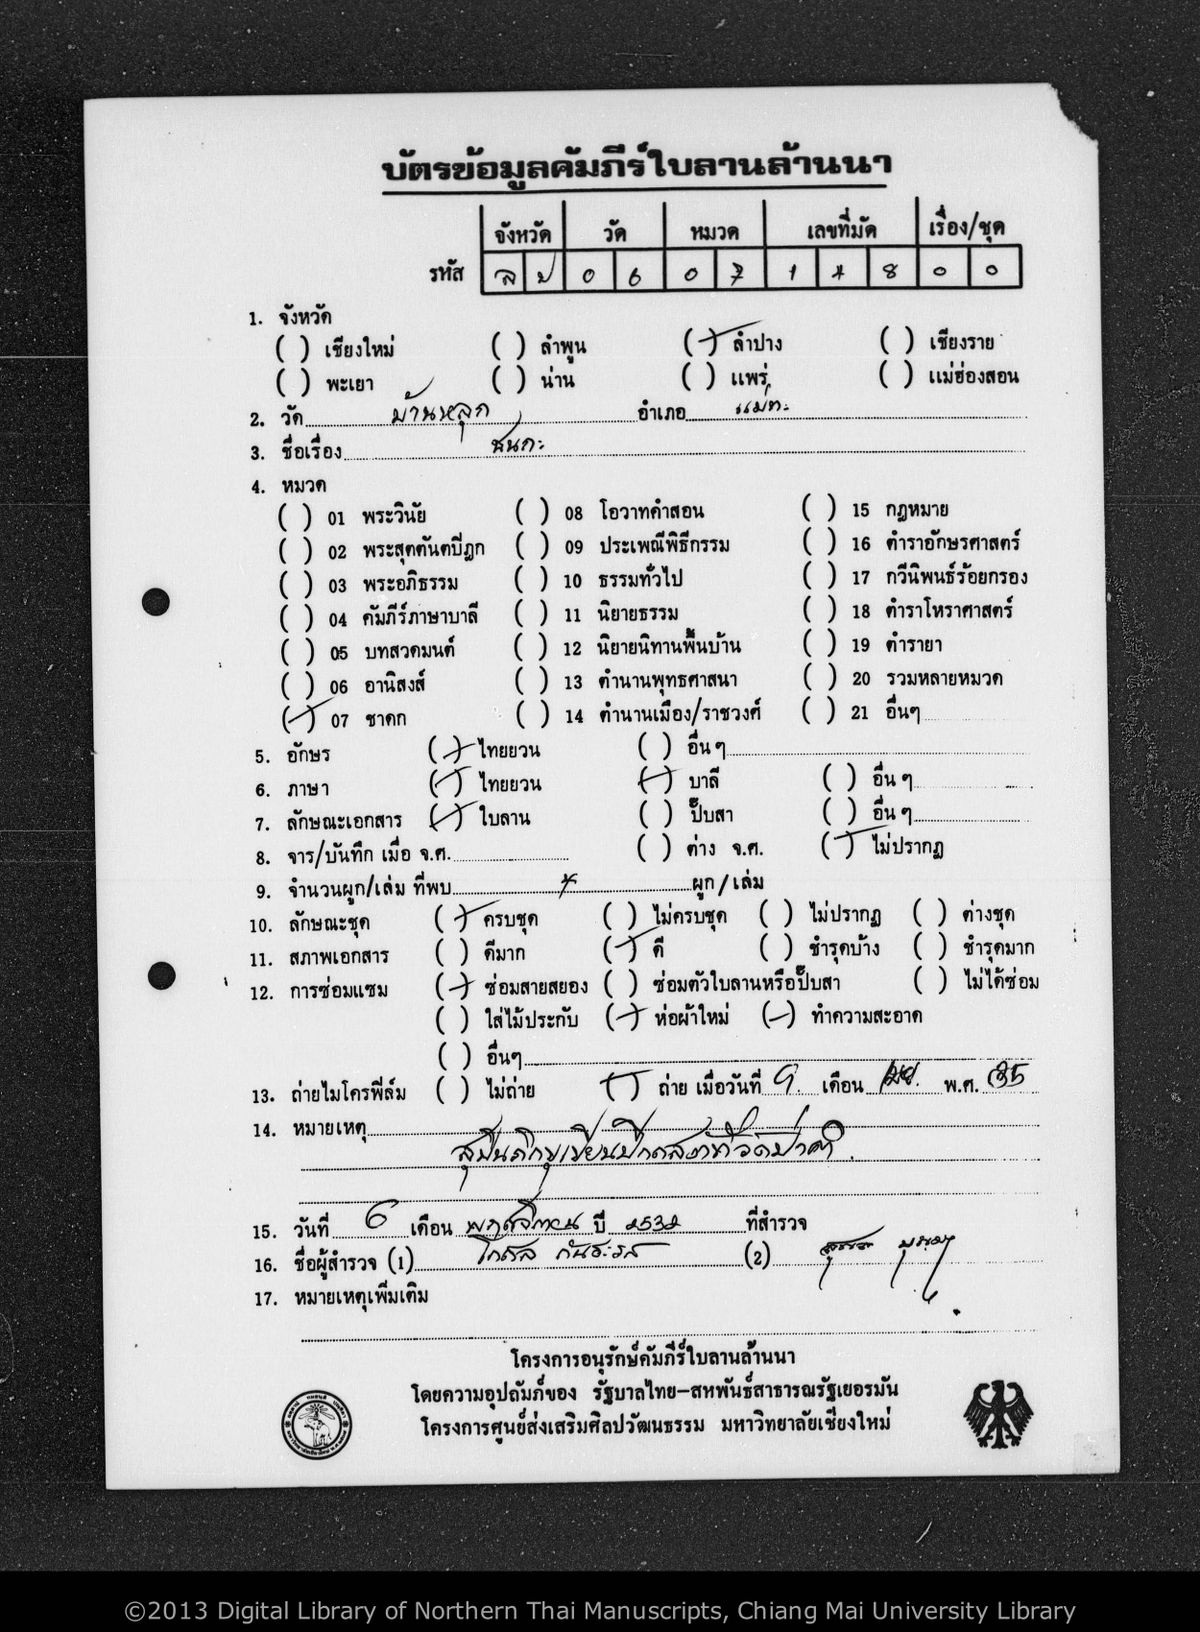 บัตรข้อมูลคัมภีร์ใบลานล้านนา
จังหวัด วัด หมวด เลขที่มัด เรื่อง/ชุด
รหัส ล ป 0 6 0 7 1 8 0 0
1. จังหวัด
( ) เชียงใหม่ ( ) ลำพูน (/) ลำปาง ( ) เชียงราย
( ) พะเยา ( ) น่าน ( ) แพร่ ( ) แม่ฮ่องสอน
2. วัด บ้านหลุก อำเภอ แม่ทะ
3. ชื่อเรื่อง ชนกะ
4. หมวด
( ) 01 พระวินัย ( ) 08 โอวาทคำสอน ( ) 15 กฎหมาย
( ) 02 พระสุตตันตปีฎก ( ) 09 ประเพณีพิธีกรรม ( ) 16 ตำราอักษรศาสตร์
( ) 03 พระอภิธรรม ( ) 10 ธรรมทั่วไป ( ) 17 กวีนิพนธ์ร้อยกรอง
( ) 04 คัมภีร์ภาษาบาลี ( ) 11 นิยายธรรม ( ) 18 ตำราโหราศาสตร์
( ) 05 บทสวดมนต์ ( ) 12 นิยายนิทานพื้นบ้าน ( ) 19 ตำรายา
( ) 06 อานิสงส์ ( ) 13 ตำนานพุทธศาสนา ( ) 20 รวมหลายหมวด
(/) 07 ชาดก ( ) 14 ตำนานเมือง/ราชวงศ์ ( ) 21 อื่นๆ
5. อักษร (/) ไทยยวน ( ) อื่น ๆ
6. ภาษา (/) ไทยยวน (/) บาลี ( ) อื่น ๆ
7. ลักษณะเอกสาร (/) ใบลาน ( ) ปั๊บสา ( ) อื่น ๆ
8. จาร/บันทึก เมื่อ จ.ศ. ( ) ต่าง จ.ศ. (/) ไม่ปรากฏ
9. จำนวนผูก/เล่ม ที่พบ ผูก/เล่ม
10. ลักษณะชุด (/) ครบชุด ( ) ไม่ครบชุด ( ) ไม่ปรากฏ ( ) ต่างชุด
11. สภาพเอกสาร ( ) ดีมาก (/) ดี ( ) ชำรุดบ้าง ( ) ชำรุดมาก
12. การซ่อมแซม (/) ซ่อมสายสยอง ( ) ซ่อมตัวใบลานหรือปั๊บสา ( ) ไม่ได้ซ่อม
( ) ใส่ไม้ประกับ (/) ห่อผ้าใหม่ (/) ทำความสะอาด
( ) อื่นๆ
13. ถ่ายไมโครฟิล์ม ( ) ไม่ถ่าย (/) ถ่าย เมื่อวันที่ 9 เดือน พ.ศ. 35
14. หมายเหตุ
15. วันที่ 6 เดือน พฤศจิกายน ปี 2532 ที่สำรวจ
16. ชื่อผู้สำรวจ (1) (2)
17. หมายเหตุเพิ่มเติม
โครงการอนุรักษ์คัมภีร์ใบลานล้านนา
โดยความอุปถัมภ์ของ รัฐบาลไทย-สหพันธ์สาธารณรัฐเยอรมัน
โครงการศูนย์ส่งเสริมศิลปวัฒนธรรม มหาวิทยาลัยเชียงใหม่
©2013 Digital Library of Northern Thai Manuscripts, Chiang Mai University Library